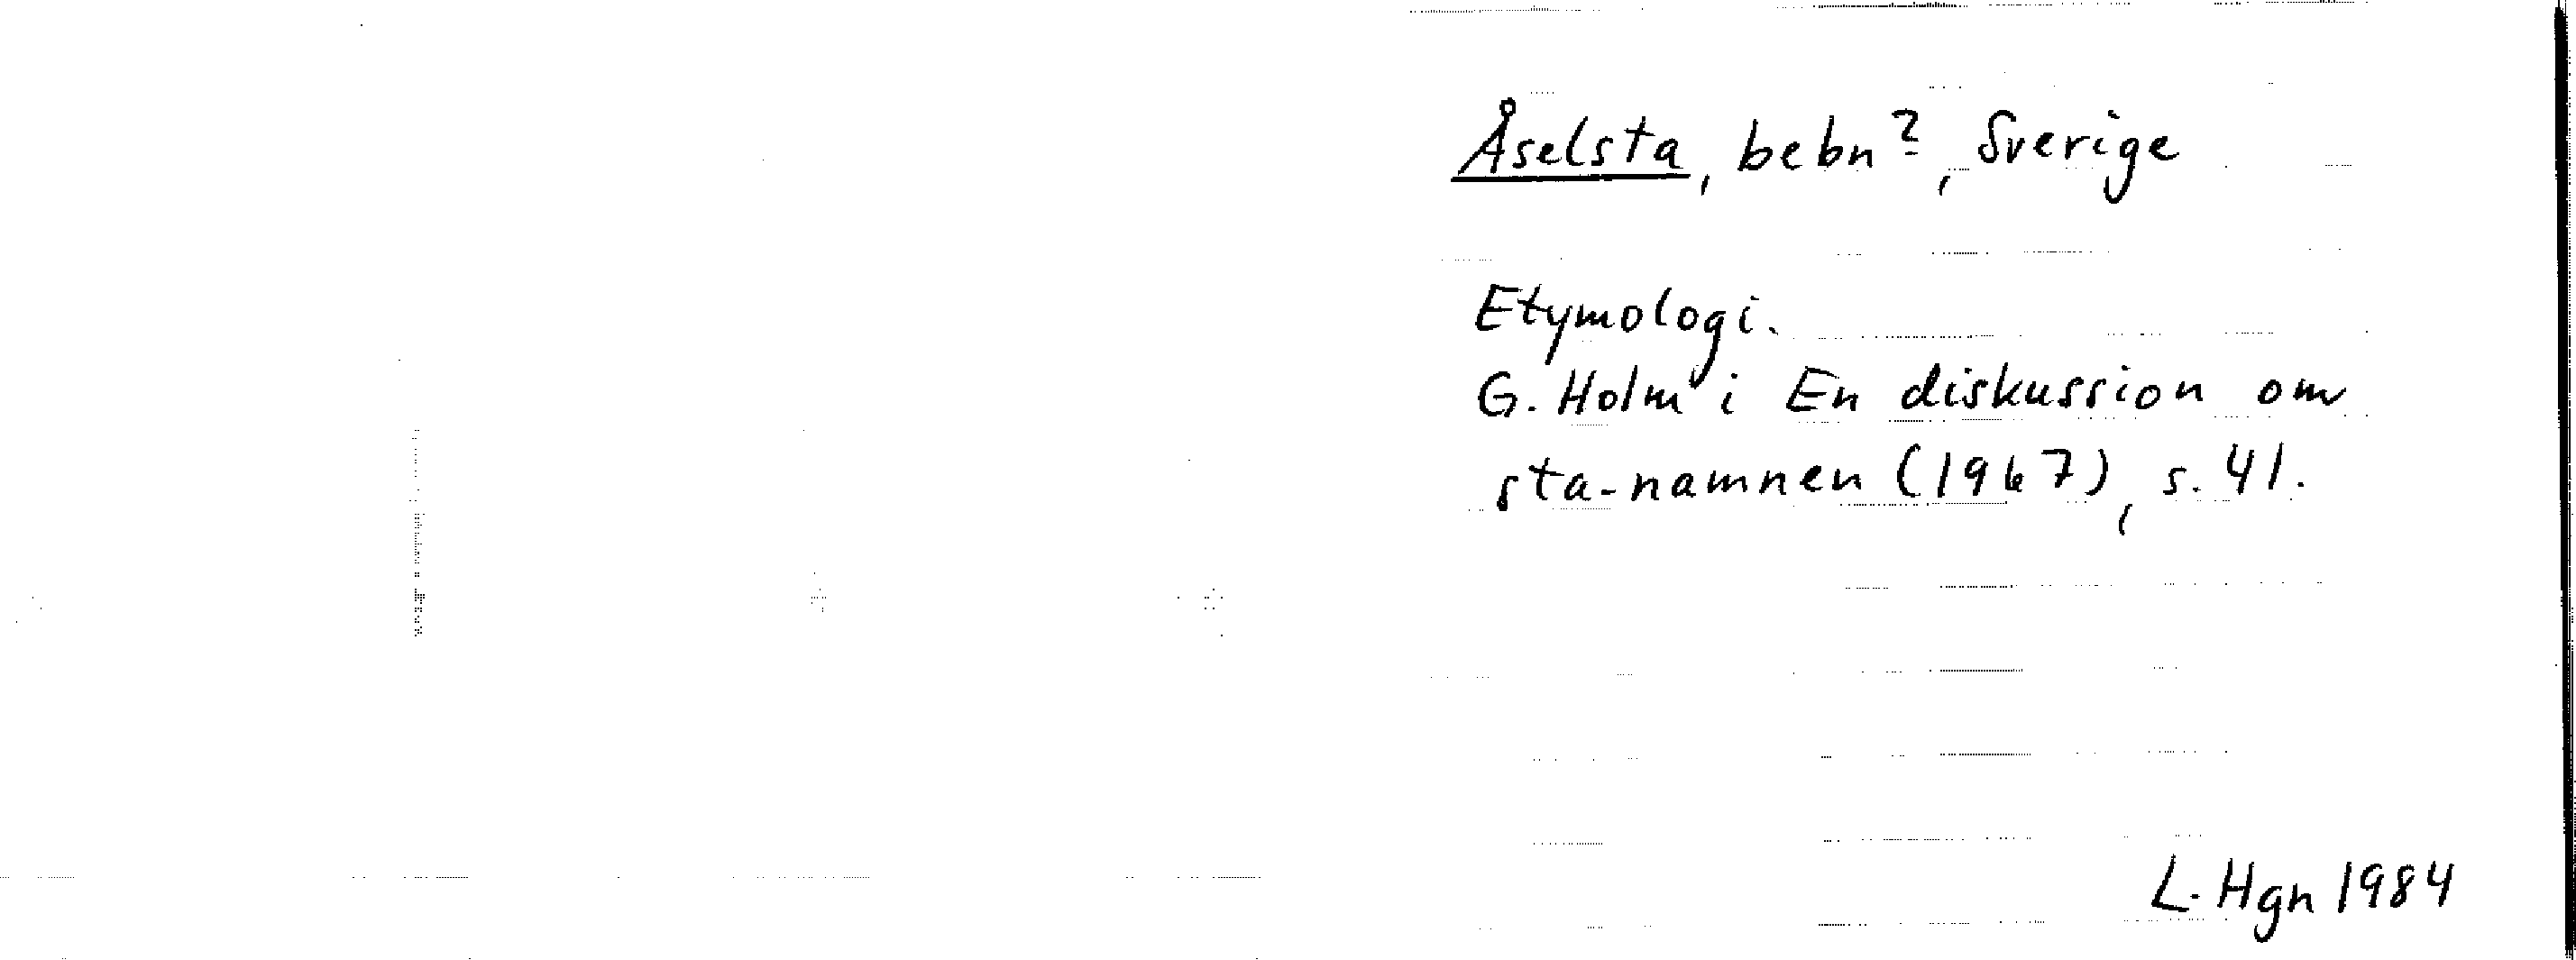 Åselsta, bebn?, Sverige
Etymologi.
G. Holm i En diskussion om
sta-namnen (1967), s. 41.
L. Hgn 1984